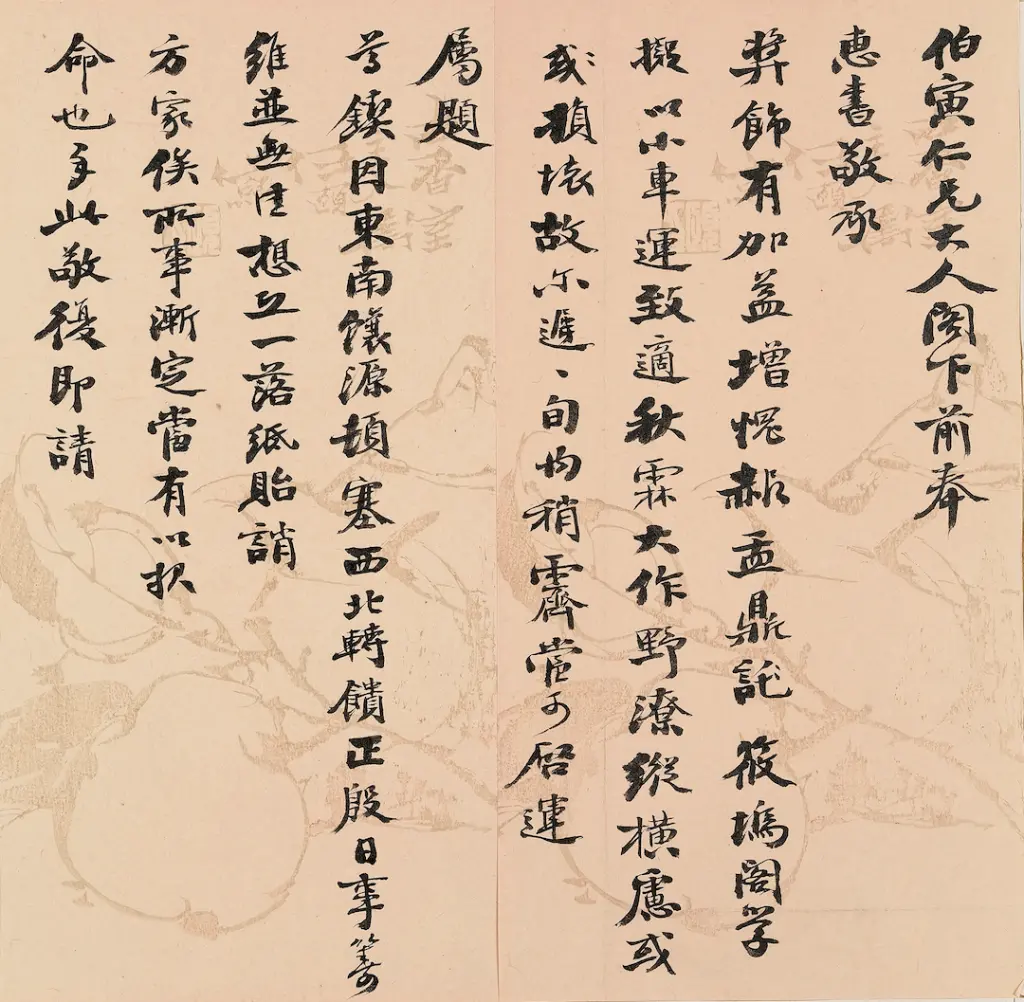 伯寅仁兄大人阁下前奉
惠書敬承
奬飾有加益增愧赧盂鼎託筱塢閣学
擬以小車運致適秋霖大作野潦縱橫慮或
或損壞故尔遲、旬内稍霽當可啓運
屬題
尊鐭因東南饟源頓塞西北轉饋正殷日事籌
維並無佳想立一落紙貽誚
方家俟所事漸定當有以報
命也手此敬復即請